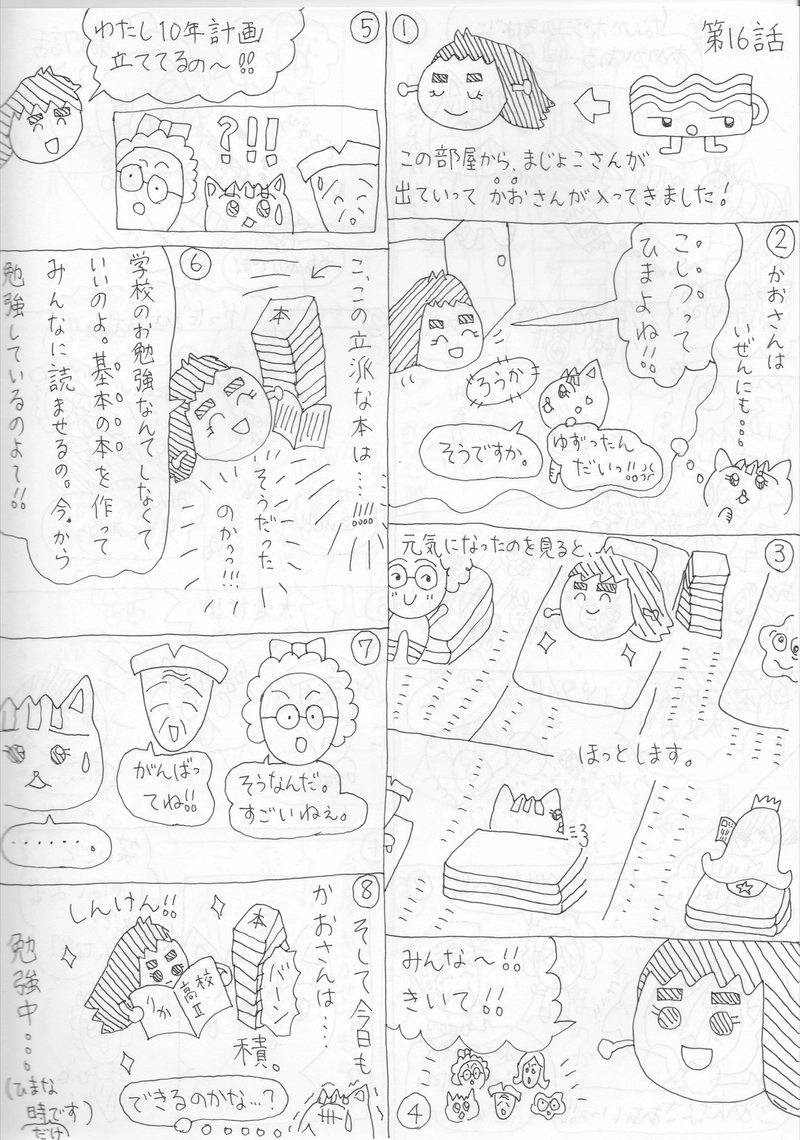 第16話
①
この部屋から、まじょこさんが
出ていって かおさんが入ってきました！
②
かおさんは
いぜんにも…
こいつって
ひまよね!!
ろうか
そうですか。
ゆずったん
だいっ!!
③
元気になったのを見ると、
ほっとします。
④
みんな〜!!
きいて!!
⑤
わたし10年計画
立ててるの〜!!
?!!
⑥
こ、この立派な本は…!!!!
本
そうだった
のかっっ!!!
学校のお勉強なんてしなくて
いいのよ。基本の本を作って
みんなに読ませるの。今から
勉強しているのよて!!
⑦
そうなんだ。
すごいねぇ。
がんばっ
てね!!
・・・・・・。
⑧
そして今日も
かおさんは…
しんけん!!
本
バーン
高校
II
りか
積。
できるのかな…?
勉強中…
(ひまな
時です)
だけ